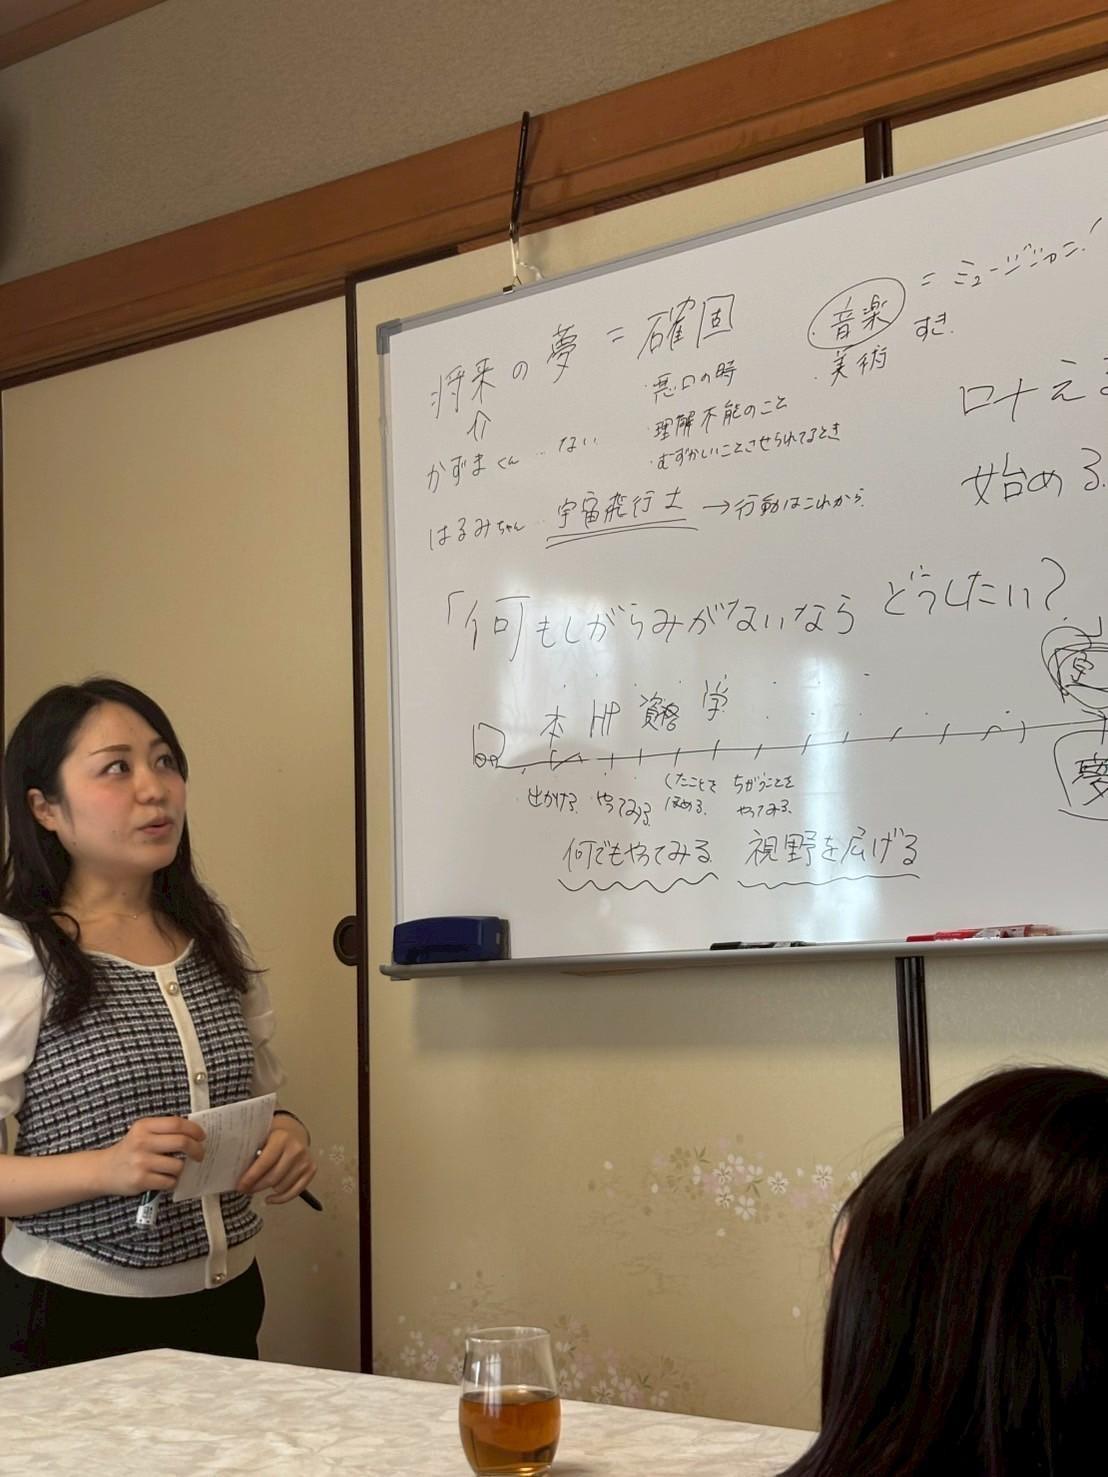 将来の夢 = 確固
・音楽 = ミュージシャン!
すき.
・美術
・悪口の時
・理解不能のこと
・むずかしいことさせられてるとき
かずまくん … ない
はるみちゃん … 宇宙飛行士 → 行動はこれから.
叶える
始める.
「何もしがらみがないなら どうしたい?
本 HP 資格 学
出かける. やってみる. したことを ほめる. ちがうことを やってみる.
夢
何でもやってみる 視野を広げる